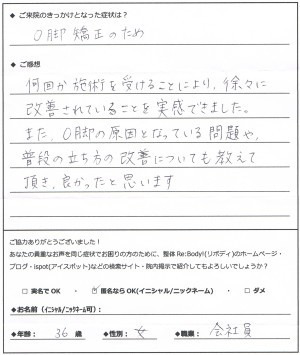 ◆ ご来院のきっかけとなった症状は?
O脚矯正のため
◆ ご感想
何回か施術を受けることにより、徐々に
改善されていることを実感できました。
また、O脚の原因となっている問題や、
普段の立ち方の改善についても教えて
頂き、良かったと思います
ご協力ありがとうございました!
あなたの貴重なお声を同じ症状でお困りの方のために、整体 Re:Body!(リボディ)のホームページ・
ブログ・ispot(アイスポット)などの検索サイト・院内掲示で紹介してもよろしいでしょうか?
□ 実名でOK ・ 匿名ならOK(イニシャル/ニックネーム) ・ □ ダメ
◆お名前(イニシャル/ニックネーム可):
◆年齢: 36 歳 ◆性別: 女 ◆職業: 会社員